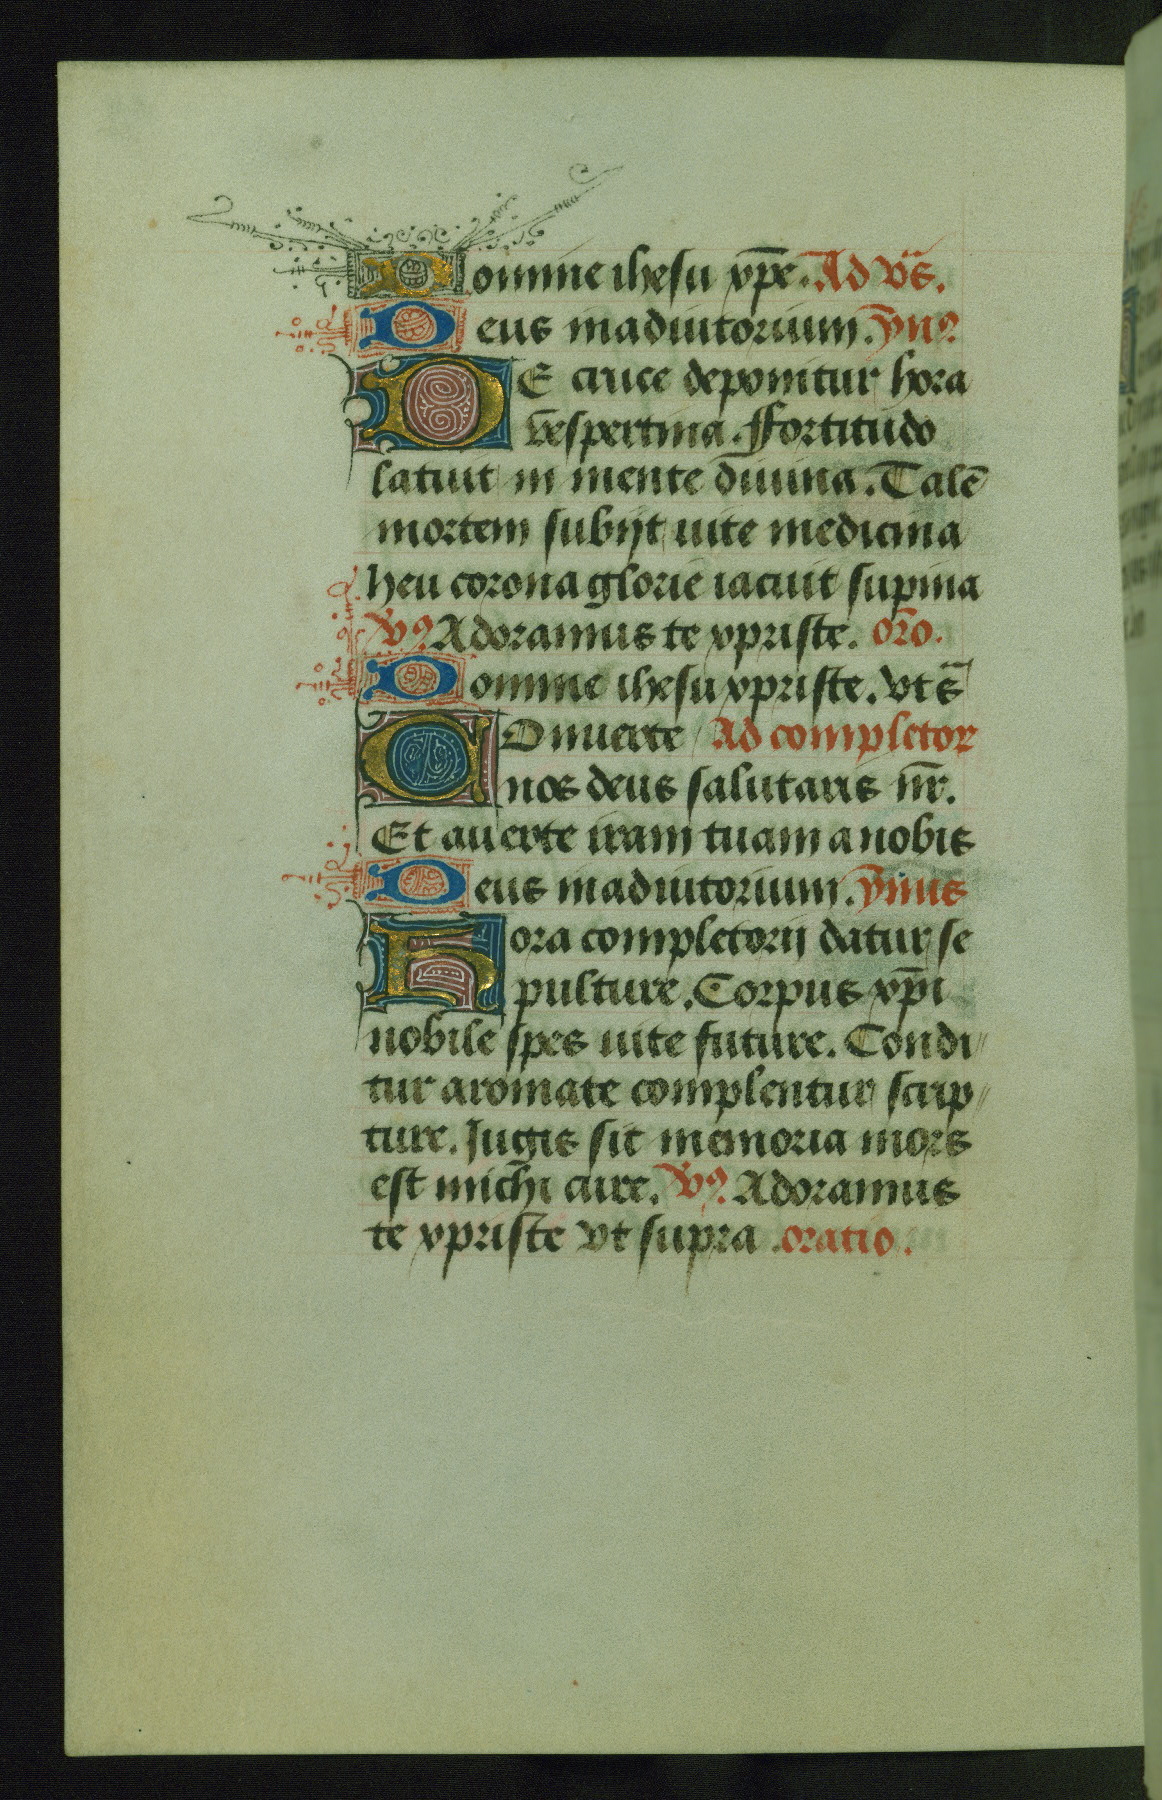 Domine ihesu xp̄e. Ad vs̄.
Deus in adiutorium. ȳn9
DE cruce deponitur hora
vespertina. Fortitudo
latuit in mente diuina. Talē
mortem subijt uite medicina
heu corona glorie iacuit supina
V9 Adoramus te xpriste. or̄o.
Domine ihesu xpriste. vt s̄
COnuerte Ad completor
nos deus salutaris nr̄.
Et auerte iram tuam a nobis
Deus in adiutorium. ȳmus
Hora completorij datur se
pulture. Corpus xp̄i
nobile spes uite future. Condi〃
tur aromate complentur scrip〃
ture. Jugis sit memoria mors
est michi cure. V9 Adoramus
te xpriste vt supra . oratio.